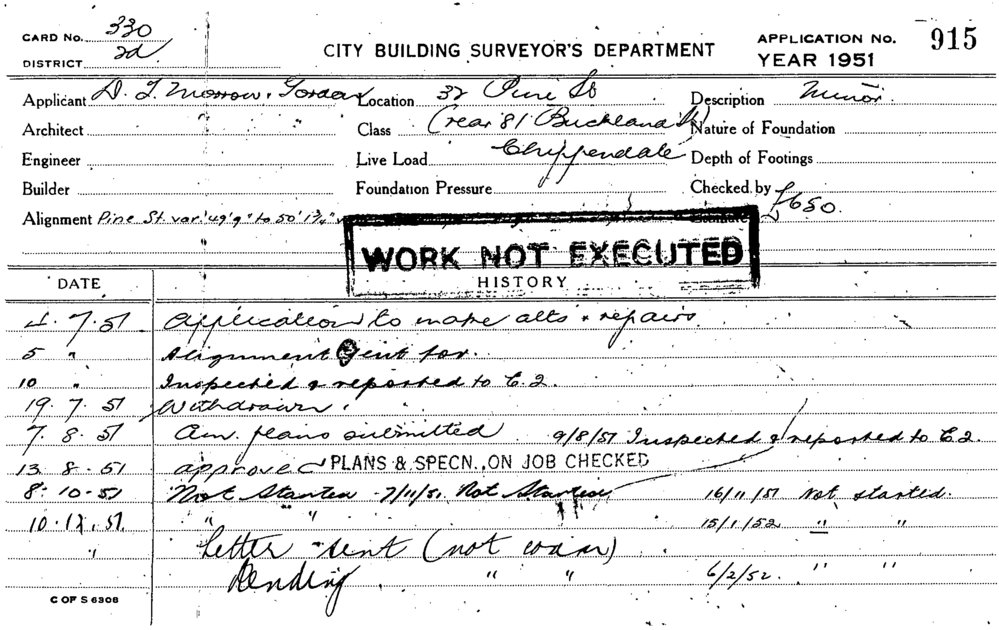 CARD No. 330
DISTRICT 2d
CITY BUILDING SURVEYOR'S DEPARTMENT
APPLICATION No. 915
YEAR 1951
Applicant D. T. Morrow, Gordon Location 32 Pine St Description Minor
Architect Class (rear 81 Buckland St) Nature of Foundation
Engineer Live Load Chippendale Depth of Footings
Builder Foundation Pressure Checked by £650
Alignment Pine St. var. 49'9" to 50' 1¾"
WORK NOT EXECUTED
DATE HISTORY
4. 7. 51 Application to make alts & repairs
5 " Alignment sent for.
10 " Inspected & reported to C.2.
19. 7. 51 Withdrawn.
7. 8. 51 Am. plans submitted 9/8/51 Inspected & reported to C.2.
13. 8. 51 approved PLANS & SPECN. ON JOB CHECKED
8. 10. 51 Not Started 7/11/51. Not Started 16/11/51 Not started.
10. 12. 51 " " 15/1/52 " "
" Letter sent (not com)
Pending " " 6/2/52. " "
C OF S 6308